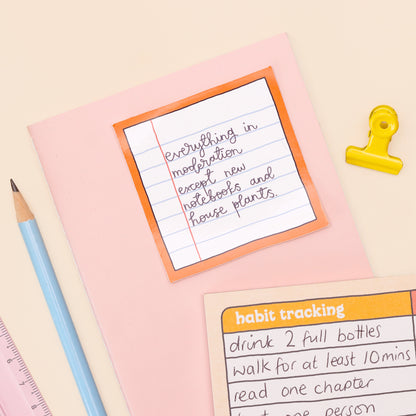 everything in
moderation
except new
notebooks and
house plants.
habit tracking
drink 2 full bottles
walk for at least 10mins
read one chapter
one person